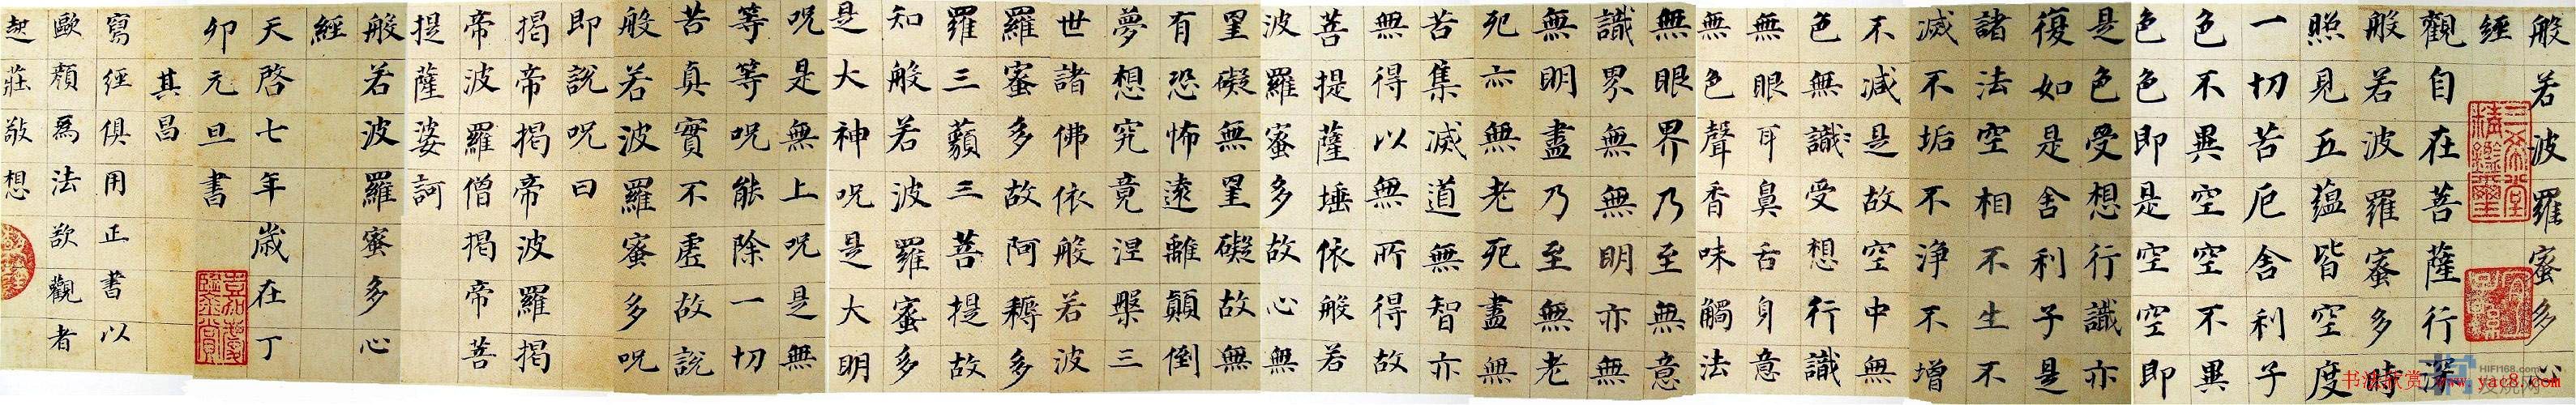 般若波羅蜜多心
經
觀自在菩薩行深
般若波羅蜜多時
照見五蘊皆空度
一切苦厄舍利子
色不異空空不異
色色即是空空即
是色受想行識亦
復如是舍利子是
諸法空相不生不
滅不垢不淨不增
不減是故空中無
色無識受想行識
無眼耳鼻舌身意
無色聲香味觸法
無眼界乃至無意
識界無無明亦無
無明盡乃至無老
死亦無老死盡無
苦集滅道無智亦
無得以無所得故
菩提薩埵依般若
波羅蜜多故心無
罣礙無罣礙故無
有恐怖遠離顛倒
夢想究竟涅槃三
世諸佛依般若波
羅蜜多故阿耨多
羅三藐三菩提故
知般若波羅蜜多
是大神呪是大明
呪是無上呪是無
等等呪能除一切
苦真實不虛故說
般若波羅蜜多呪
即說呪曰
揭帝揭帝波羅揭
帝波羅僧揭帝菩
提薩婆訶
般若波羅蜜多心
經
天啓七年歲在丁
卯元旦書
其昌
寫經俱用正書以
歐顏爲法欲觀者
起莊敬想
三希堂精鑑璽
书法欣赏 www.yac8.com
HIFI168.com